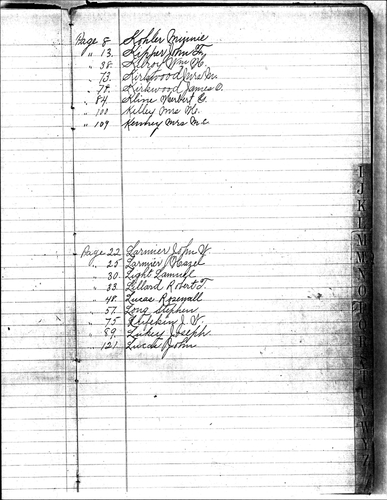 Page 8 Kohler Minnie
" 13. Kipper John F.
" 38. Kilroy Wm H.
" 73. Kirkwood Mrs M.
" 79. Kirkwood James O.
" 84 Kline Herbert C.
" 100 Killey Mrs H.
" 109 Kenney Mrs M.C.
Page 22 Larmier John W.
" 25 Larmier Hazel
" 30. Light Samuel
" 33. Lillard Robert T.
" 48. Lucas Rosevall
" 57. Long Stephen
" 75 J. W.
" 89 Lukey Joseph.
" 121 Lucas John
I
J
K
L
M